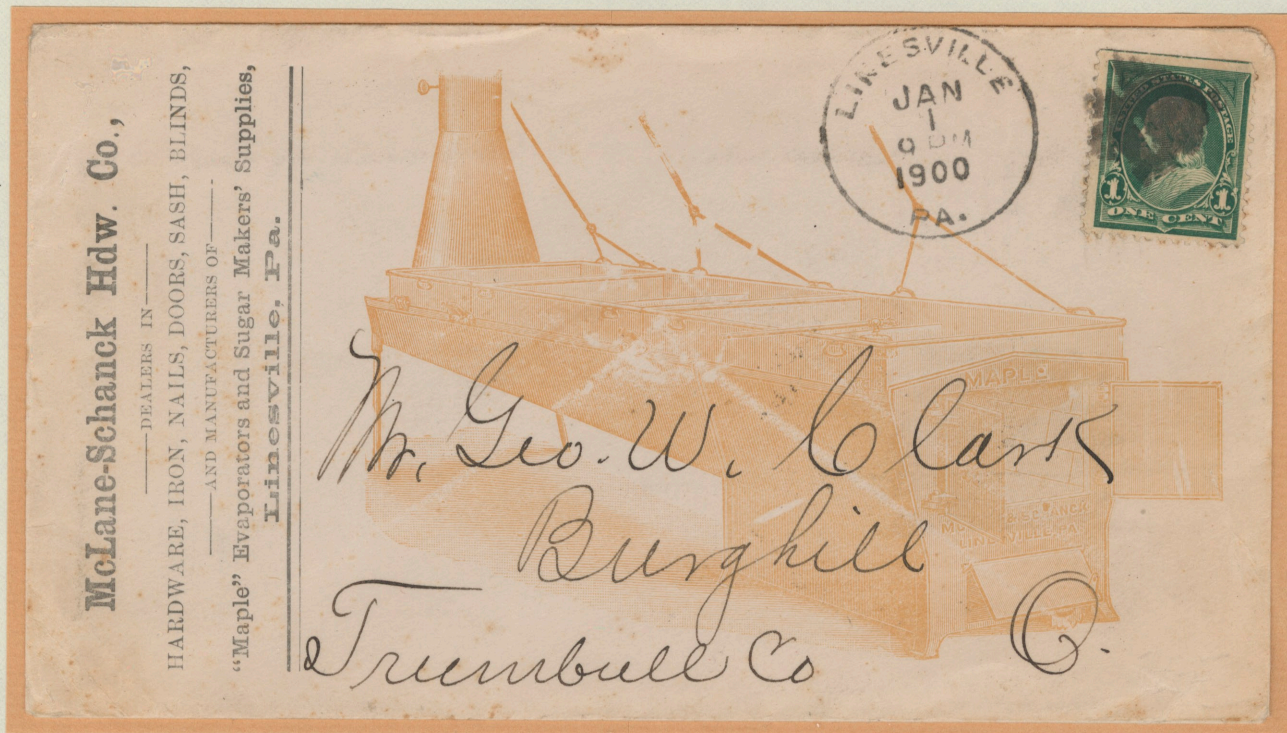 McLane-Schanck Hdw. Co.,
DEALERS IN
HARDWARE, IRON, NAILS, DOORS, SASH, BLINDS,
AND MANUFACTURERS OF
"Maple" Evaporators and Sugar Makers' Supplies,
Linesville, Pa.
LINESVILLE
JAN
1
9 PM
1900
PA.
UNITED STATES POSTAGE
1 1
ONE CENT
MAPLE
LINESVILLE PA.
Mr. Geo. W. Clark
Burghill
Trumbull Co O.